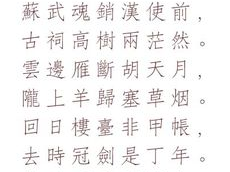 蘇武魂銷漢使前，
古祠高樹兩茫然。
雲邊雁斷胡天月，
隴上羊歸塞草烟。
回日樓臺非甲帳，
去時冠劍是丁年。